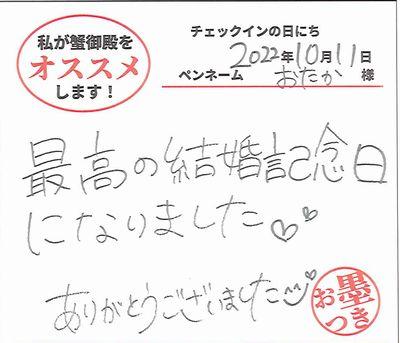 私が蟹御殿を
オススメ
します！
チェックインの日にち
2022年10月11日
ペンネーム おたか 様
最高の結婚記念日
になりました♡♡
ありがとうございました♡
お墨つき